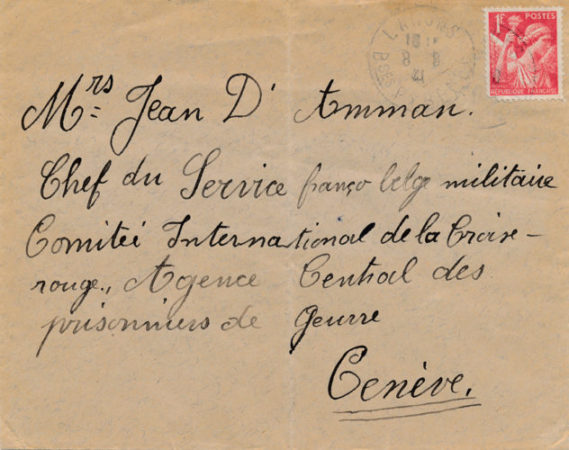 1F POSTES
RÉPUBLIQUE FRANÇAISE
8 8
41
Mrs Jean D' Amman.
Chef du Service franço belge militaire
Comiteé International de la Croise-
rouge., Agence Central des
prisonniers de Geurre
Genève.